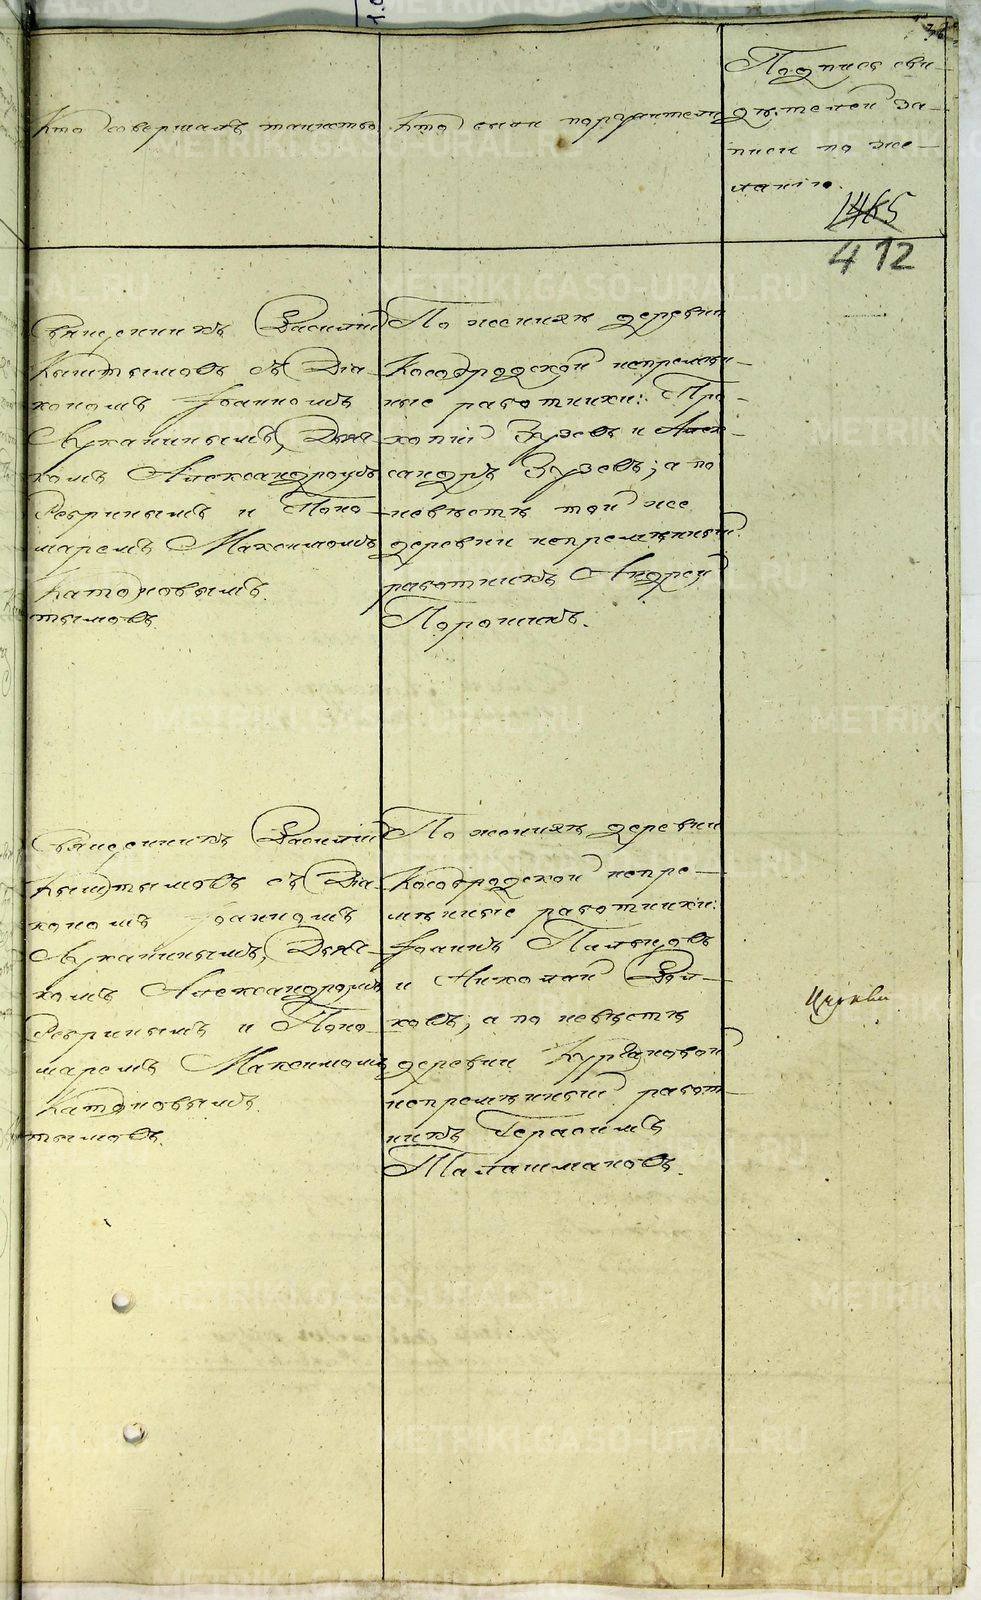 36
Кто совершалъ таинство
Кто были поручители
Подпись сви-
дѣтелей за-
писи по же-
ланію.
1465
412
Священникъ Василій
Кыштымовъ съ Діа-
кономъ Іоанномъ
Лукаинымъ, Дьяч-
комъ Александромъ
Ребринымъ и Поно-
маремъ Максимомъ
Катановымъ.
тымовъ.
По женихѣ деревни
Кособродской непремѣн-
ные работники: Про-
копій Зуевъ и Алек-
сандръ Зуевъ; а по
невѣстѣ той же
деревни непремѣнный
работникъ Андрей
Порошинъ.
Священникъ Василій
Кыштымовъ съ Діа-
кономъ Іоанномъ
Лукаинымъ, Дьяч-
комъ Александромъ
Ребринымъ и Поно-
маремъ Максимомъ
Катановымъ.
тымовъ.
По женихѣ деревни
Кособродской непре-
мѣнные работники:
Іоаннъ Пальцовъ
и Николай Вол-
ковъ; а по невѣстѣ
деревни Кургановой
непремѣнный работ-
никъ Герасимъ
Талашмановъ.
Церкви
METRIKI.GASO-URAL.RU